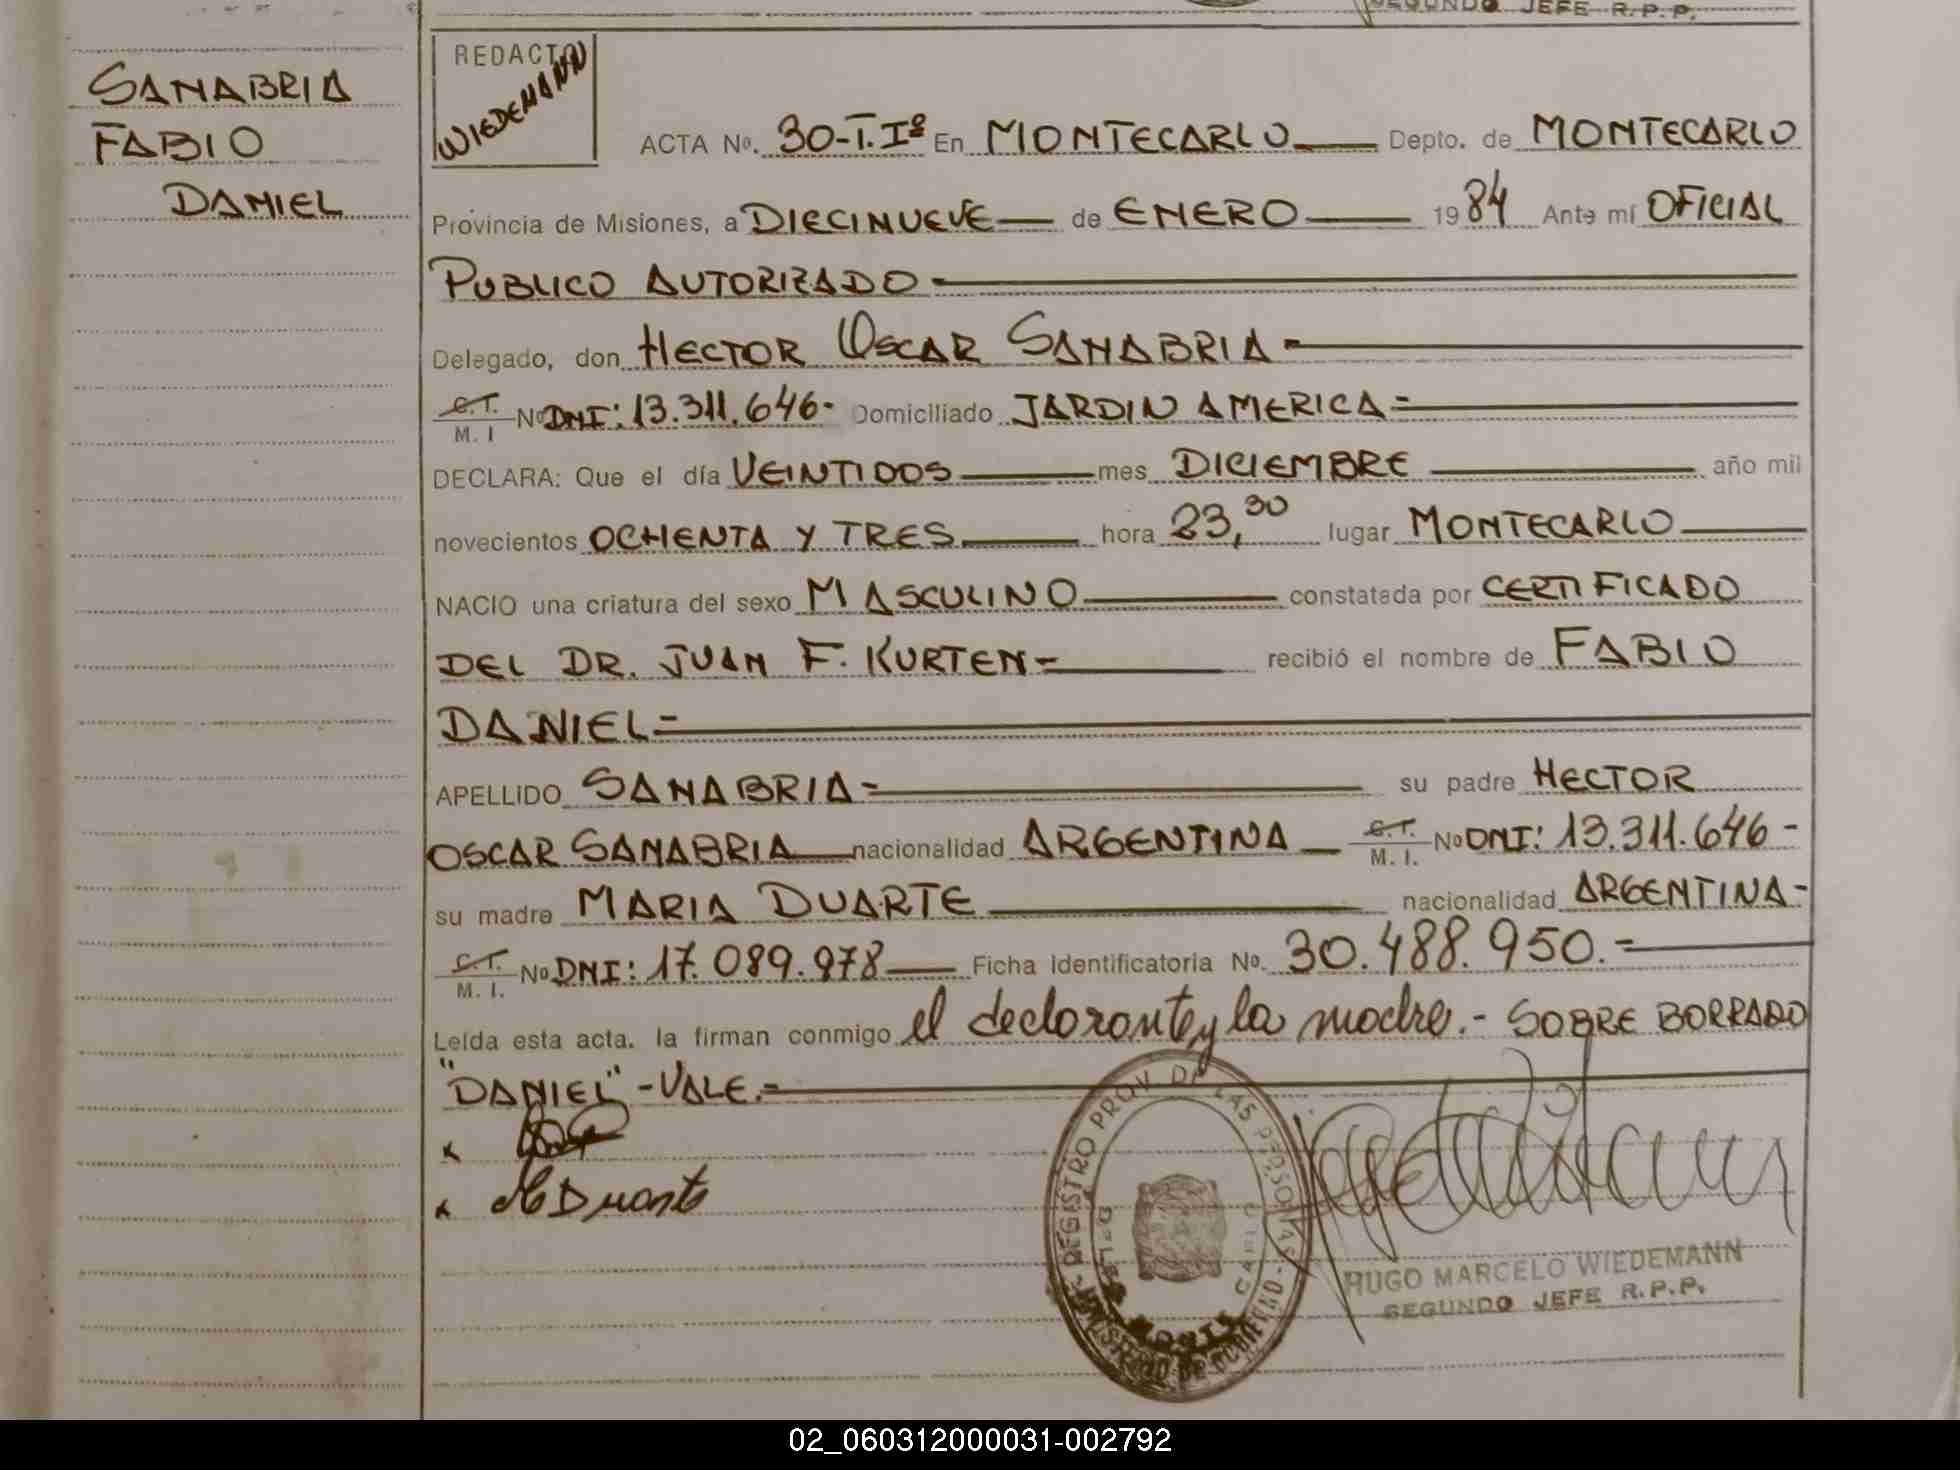 SEGUNDO JEFE R.P.P.
SANABRIA
FABIO
DANIEL
REDACTO
WIEDEMANN
ACTA Nº. 30-T.Iº En MONTECARLO Depto. de MONTECARLO
Provincia de Misiones, a DIECINUEVE de ENERO 1984 Ante mí OFICIAL
PUBLICO AUTORIZADO
Delegado, don HECTOR OSCAR SANABRIA
C.T. M. I Nº DNI: 13.311.646 Domiciliado JARDIN AMERICA
DECLARA: Que el día VEINTIDOS mes DICIEMBRE año mil
novecientos OCHENTA Y TRES hora 23,30 lugar MONTECARLO
NACIO una criatura del sexo MASCULINO constatada por CERTIFICADO
DEL DR. JUAN F. KURTEN recibió el nombre de FABIO
DANIEL
APELLIDO SANABRIA su padre HECTOR
OSCAR SANABRIA nacionalidad ARGENTINA C.T. M. I. Nº DNI: 13.311.646
su madre MARIA DUARTE nacionalidad ARGENTINA
C.T. M. I. Nº DNI: 17.089.978 Ficha Identificatoria Nº. 30.488.950.
Leída esta acta, la firman conmigo el declarante y la madre.- SOBRE BORRADO
"DANIEL" - VALE.
M Duarte
REGISTRO PROV. DE LAS PERSONAS
MINISTERIO DE GOBIERNO
HUGO MARCELO WIEDEMANN
SEGUNDO JEFE R.P.P.
02_060312000031-002792